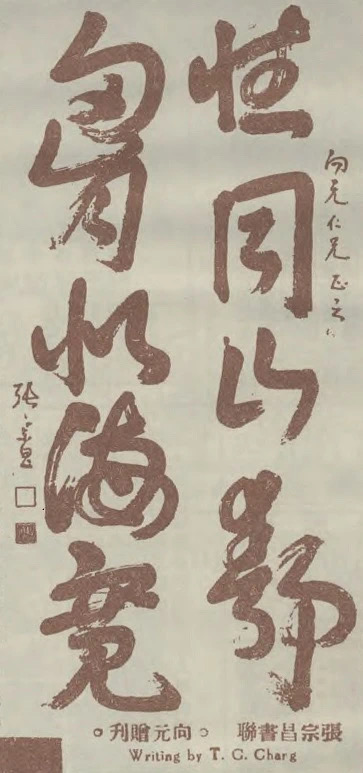 向元仁兄正之
性同山靜
胷似海寬
張宗昌
張宗昌書聯。向元贈刊。
Writing by T. C. Charg